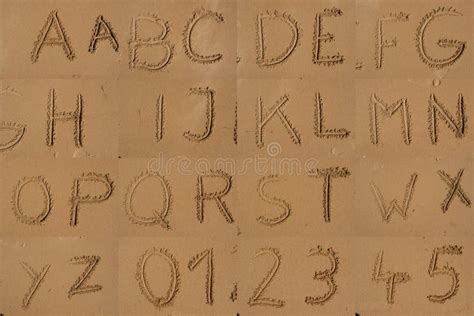 A A B C D E F G
G H I J K L M N
O P Q R S T W X
Y Z 0 1 2 3 4 5
dreamstime